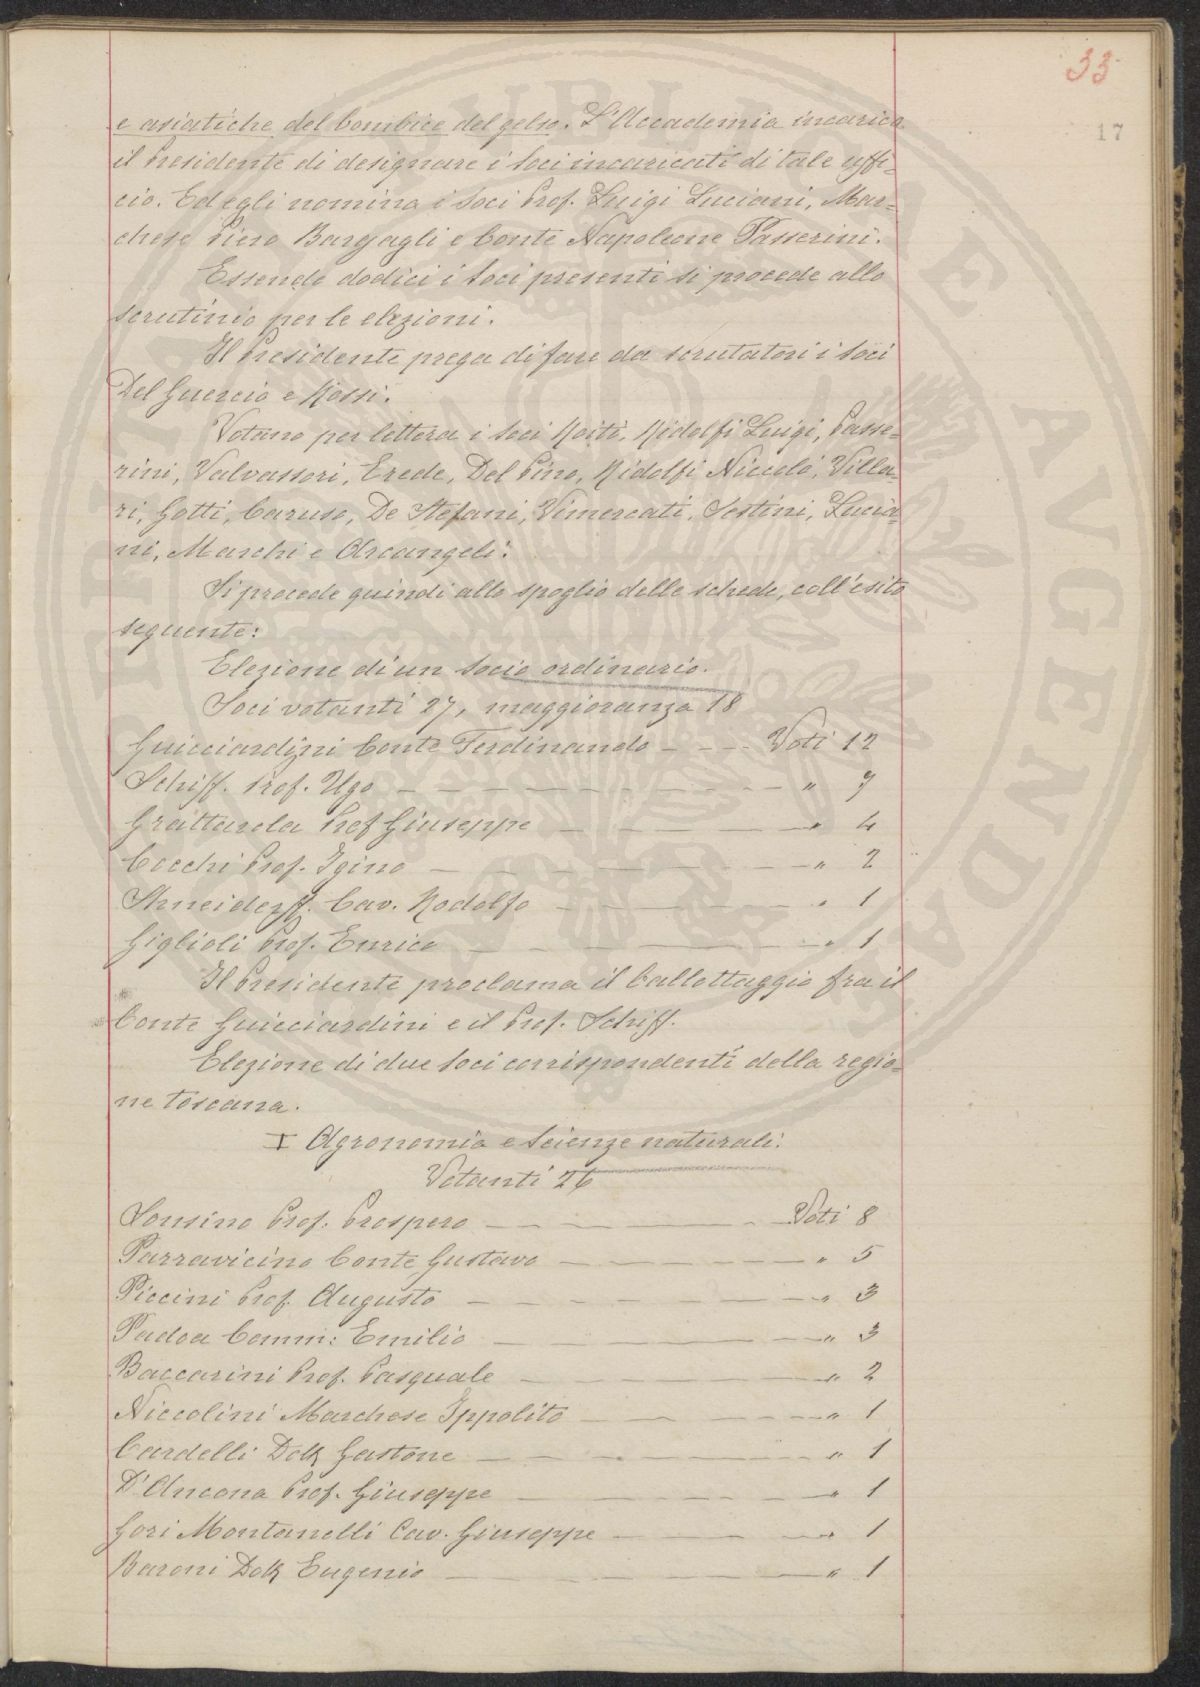 33
17
e asiatiche del bombice del gelso. L'Accademia incarica
il Presidente di designare i Soci incaricati di tale uffi=
cio. Ed egli nomina i Soci Prof. Luigi Luciani, Mar=
chese Piero Bargagli e Conte Napoleone Passerini.
Essendo dodici i Soci presenti si procede allo
scrutinio per le elezioni.
Il Presidente prega di fare da scrutatori i Soci
Del Guercio e Rossi.
Votano per lettera i Soci Roiti, Ridolfi Luigi, Passe=
rini, Valvassori, Erede, Del Pino, Ridolfi Niccolò, Villa=
ri, Gotti, Caruso, De Stefani, Vimercati, Sestini, Lucia=
ni, Marchi e Arcangeli.
Si procede quindi allo spoglio delle schede, coll'esito
seguente:
Elezione di un Socio ordinario.
Soci votanti 27, maggioranza 18
Guicciardini Conte Ferdinando — — — Voti 12
Schiff. Prof. Ugo — — — " 7
Grattarola Prof Giuseppe — — — " 4
Cocchi Prof. Igino — — — " 2
Shneiderff. Cav. Rodolfo — — — " 1
Giglioli Prof. Enrico — — — " 1
Il Presidente proclama il ballottaggio fra il
Conte Guicciardini e il Prof. Schiff.
Elezione di due Soci corrispondenti della regio=
ne toscana.
I Agronomia e Scienze naturali.
Votanti 26
Sonsino Prof. Prospero — — — Voti 8
Parravicino Conte Gustavo — — — " 5
Piccini Prof. Augusto — — — " 3
Padoa Comm: Emilio — — — " 3
Baccarini Prof. Pasquale — — — " 2
Niccolini Marchese Ippolito — — — " 1
Cardelli Dott Gastone — — — " 1
D'Ancona Prof. Giuseppe — — — " 1
Gori Montanelli Cav. Giuseppe — — — " 1
Baroni Dott Eugenio — — — " 1